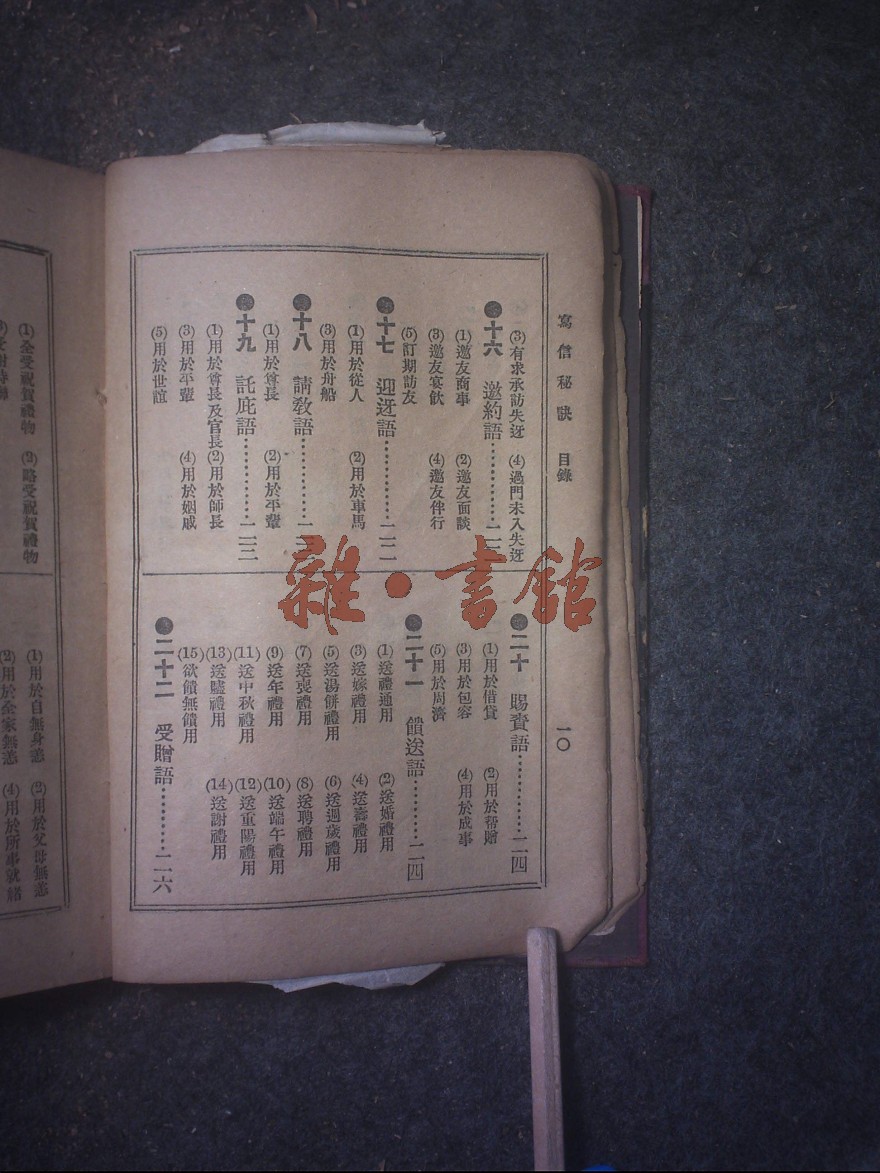 寫信秘訣 目錄
一〇
(3)有求承訪失迓 (4)過門未入失迓
十六 邀約語
(1)邀友商事 (2)邀友面談
(3)邀友宴飲 (4)邀友伴行
(5)訂期訪友
十七 迎迓語…………二二
(1)用於從人 (2)用於車馬
(3)用於舟船
十八 請教語
(1)用於尊長 (2)用於平輩
十九 託庇語…………二三
(1)用於尊長及官長 (2)用於師長
(3)用於平輩 (4)用於姻戚
(5)用於世誼
二十 賜賚語…………二四
(1)用於借貸 (2)用於帮贈
(3)用於包容 (4)用於成事
(5)用於周濟
二十一 餽送語…………二四
(1)送禮通用 (2)送婚禮用
(3)送嫁禮用 (4)送壽禮用
(5)送湯餅禮用 (6)送週歲禮用
(7)送喪禮用 (8)送聘禮用
(9)送年禮用 (10)送端午禮用
(11)送中秋禮用 (12)送重陽禮用
(13)送贐禮用 (14)送謝禮用
(15)欲餽無餽用
二十二 受贈語…………二六
(1)全受祝賀禮物 (2)略受祝賀禮物
(1)用於自無身恙 (2)用於父母無恙
(2)用於全家無恙 (4)用於所事就緒
雜·書館